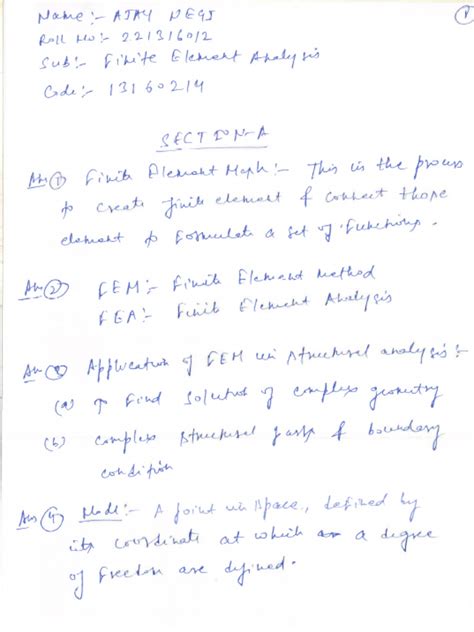 Name:- AJAY NEGI
1
Roll No:- 221316012
Sub:- Finite Element Analysis
Code:- 13160214
SECTION-A
Ans ① Finite Element Mesh:- This is the process
to create finite element & connect those
element to formulate a set of functions.
Ans ② FEM:- Finite Element Method
FEA:- Finite Element Analysis
Ans ③ Application of FEM in structural analysis:-
(a) To Find solution of complex geometry
(b) complex structural & boundary
condition
Ans ④ Node:- A point in space, defined by
its coordinate at which a degree
of freedom are defined.